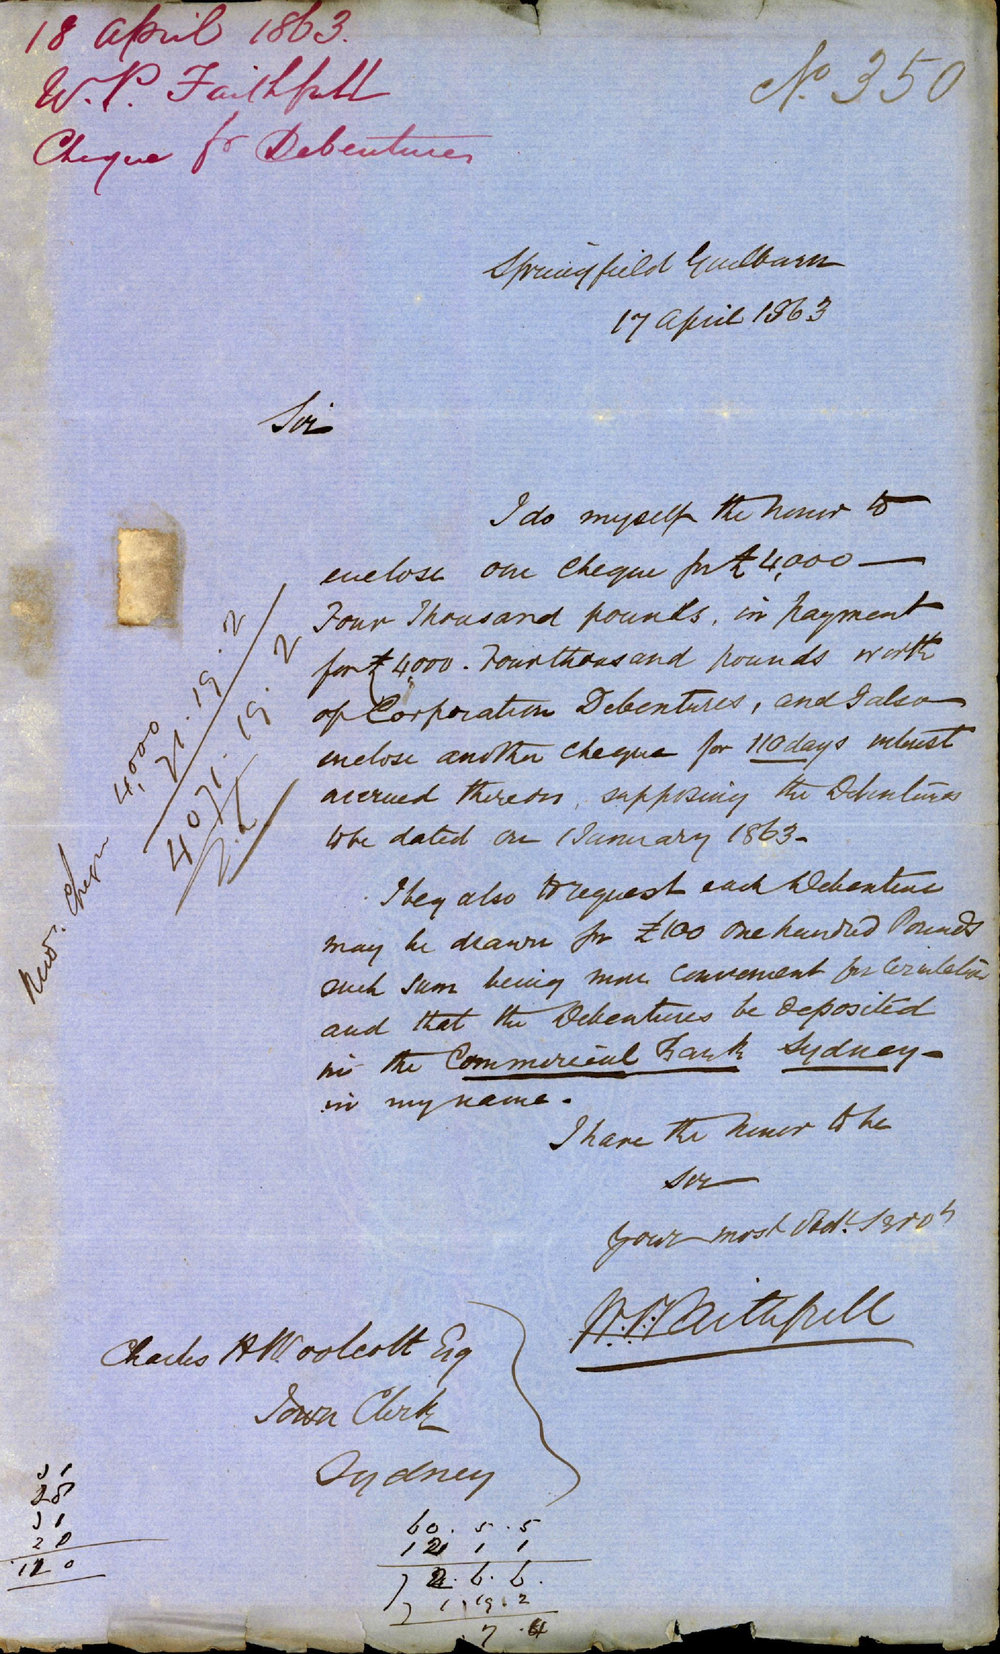 18 April 1863.
W. P. Faithfull
Cheque for Debentures
No. 350
Springfield Goulburn
17 April 1863
Sir
I do myself the honor to
enclose one Cheque for £4,000 —
Four Thousand pounds, in payment
for £4,000. Four thousand pounds worth
of Corporation Debentures, and I also
enclose another cheque for 110 days interest
accrued thereon, supposing the Debentures
to be dated on 1 January 1863 -
I beg also to request each Debenture
may be drawn for £100 One hundred Pounds
such sum being more convenient for Circulation
and that the Debentures be deposited
in the Commercial Bank Sydney -
in my name.
I have the honor to be
Sir
Your most Obdt. Servt
W. P. Faithfull
Charles H Woolcott Esq
Town Clerk
Sydney
Cheque
4,000
71.19.2
4071.19.2
31
28
31
20
120
60.5.5
12 1 1
6.6.
1.19.2
.7.4